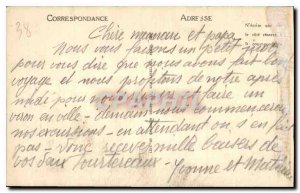 38
CORRESPONDANCE
ADRESSE
N'écrire
le côté
Chère maman et papa
Nous vous faisons un petit
pour vous dire que nous avons fait bon
voyage et nous profitons de notre après
midi pour nous faire un
en ville – demain nous commencerons
nos excursions – en attendant on s'en fait
pas – vous recevez mille baisers de
vos deux tourtereaux – Yvonne et